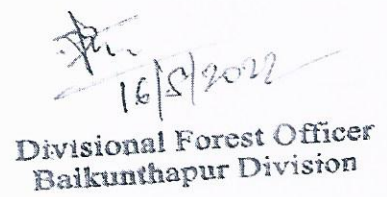 16/5/2022
Divisional Forest Officer
Baikunthapur Division